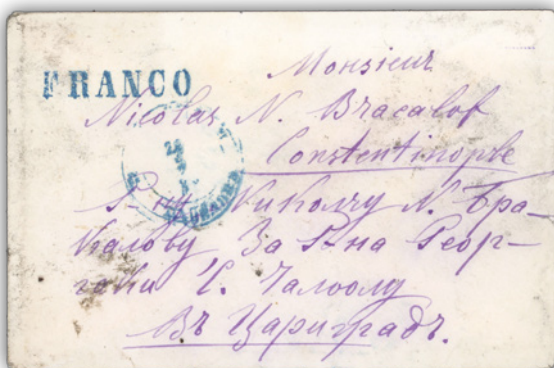 FRANCO
Monsieur
Nicolas N. Bracalof
Constentinople
Николу Н. Бра-
калову За Г-на Геор-
Въ Цариградъ.